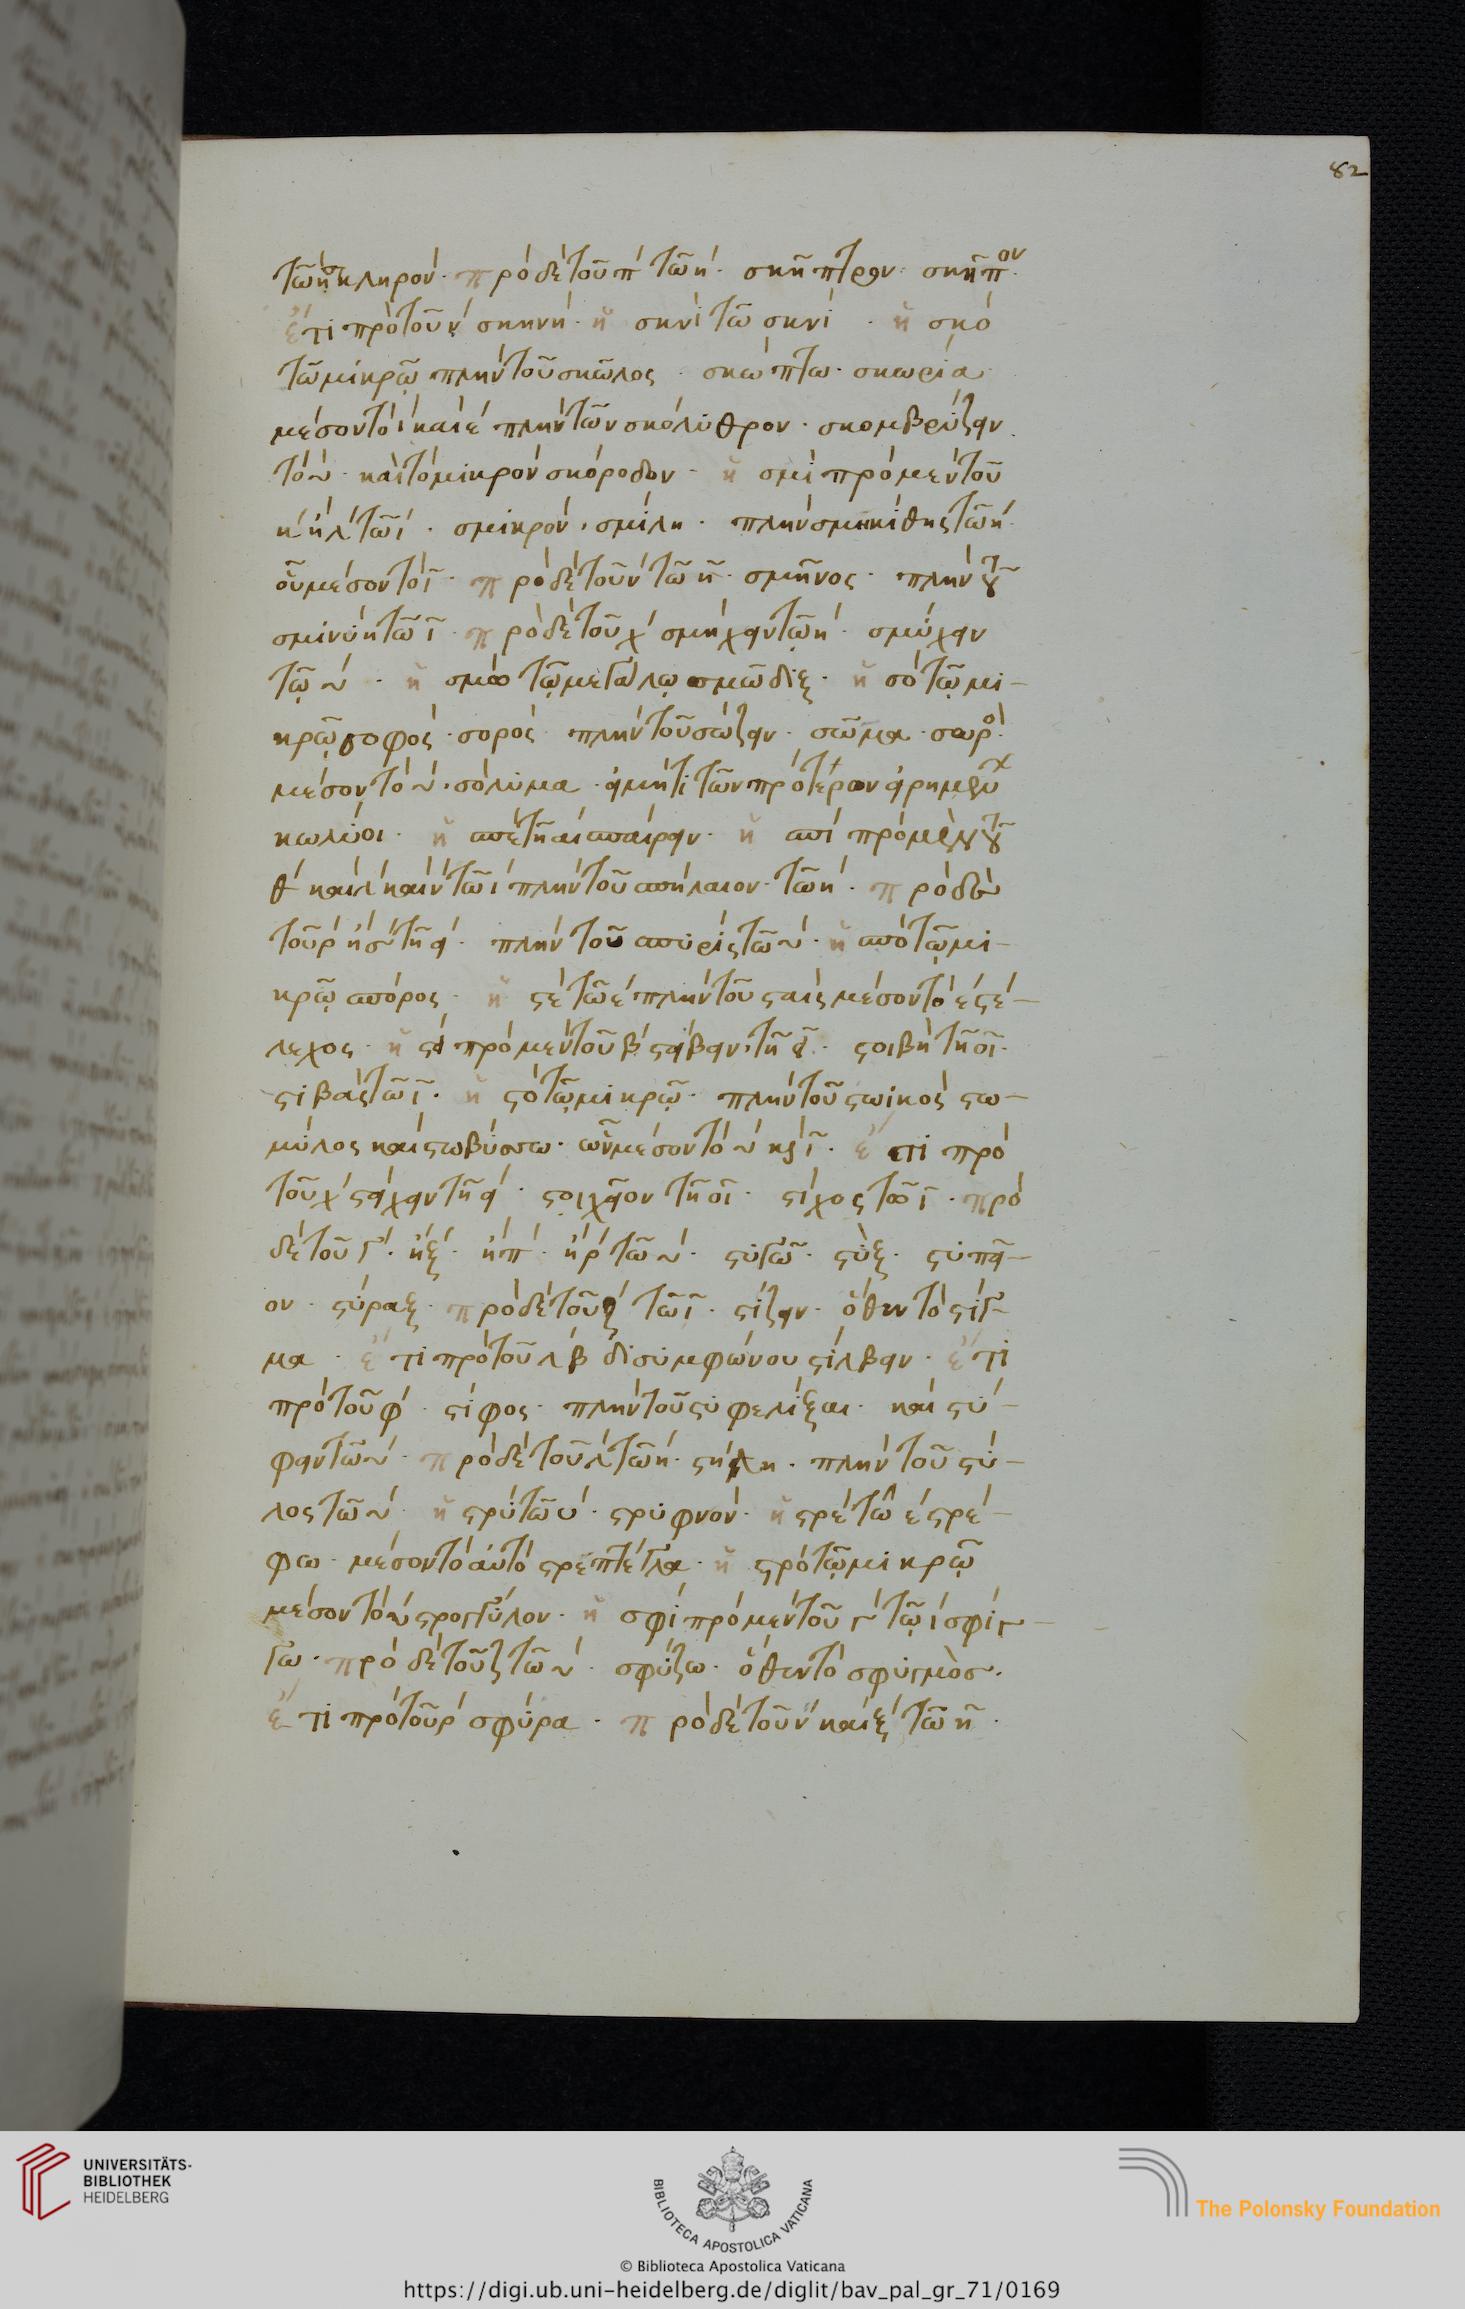 82
τῶ η σκληρόν. πρὸ δὲ τοῦ π τῶ η. σκῆπτρον. σκηπ
ἔτι πρὸ τοῦ ν σκηνή. ἢ σκνὶ τῶ σκνί. ἢ σκο
τῶ μικρῷ πλὴν τοῦ σκῶλος. σκώπτω. σκωρία
μέσον τὸ ι καὶ ε πλὴν τῶν σκολύθρον. σκομβρύζειν
τὸ υ. καὶ τὸ μικρὸν σκόροδον. ἢ σμι πρὸ μὲν τοῦ
κ ἢ λ τῶ ι. σμικρόν, σμίλη. πλὴν σμηκίθης τῶ η.
οὗ μέσον τὸ ι. πρὸ δὲ τοῦ ν τῶ η. σμῆνος. πλὴν τοῦ
σμινύη τῶ ι. πρὸ δὲ τοῦ χ σμήχειν τῶ η. σμύχειν
τῷ υ. ἢ σμω τῷ μεγάλῳ σμῶδιξ. ἢ σο τῷ μι-
κρῷ σοφός. σορός. πλὴν τοῦ σώζειν. σῶμα. σωρό
μέσον τὸ υ. σόλυμα. εἰ μή τι τῶν πρότερον εἰρημένων
κωλύοι. ἢ σπε τῇ αι σπαίρειν. ἢ σπι πρὸ μὲν τοῦ
θ καὶ λ καὶ ν τῶ ι πλὴν τοῦ σπήλαιον. τῶ η. πρὸ δὲ
τοῦ ρ ἢ σ τῇ ει. πλὴν τοῦ σπυρὶς τῶ υ. ἢ σπο τῷ μι-
κρῷ σπόρος. ἢ στε τῶ ε πλὴν τοῦ σταις μέσον τὸ ε στέ-
λεχος. ἢ στι πρὸ μὲν τοῦ β στείβειν, τῇ ει. στοιβὴ τῇ οι.
στιβὰς τῶ ι. ἢ στο τῷ μικρῷ. πλὴν τοῦ στωικὸς στω-
μύλος καὶ στωβύσσω. ὧν μέσον τὸ υ καὶ ι. ἔτι πρὸ
τοῦ χ στείχειν τῇ ει. στοιχεῖον τῇ οι. στίχος τῶ ι. πρὸ
δὲ τοῦ γ. ἢ ξ. ἢ π. ἢ ρ τῶ υ. στυγῶ. στὺξ. στυπεῖ-
ον. στύραξ. πρὸ δὲ τοῦ ζ τῶ ι. στίζειν. ὅθεν τὸ στίγ-
μα. ἔτι πρὸ τοῦ λβ δισυμφώνου στίλβειν. ἔτι
πρὸ τοῦ φ. στίφος. πλὴν τοῦ στυφελίξαι. καὶ στύ-
φειν τῶ υ. πρὸ δὲ τοῦ λ τῶ η. στήλη. πλὴν τοῦ στύ-
λος τῶ υ. ἢ στρυ τῶ υ. στρυφνόν. ἢ στρε τῶ ε στρέ-
φω. μέσον τὸ αὐτὸ στρεπτε. ἢ στρο τῷ μικρῷ
μέσον τὸ υ στρογγύλον. ἢ σφι πρὸ μὲν τοῦ γ τῷ ι σφίγ-
γω. πρὸ δὲ τοῦ ζ τῶ υ. σφύζω. ὅθεν τὸ σφυγμὸσ.
ἔτι πρὸ τοῦ ρ σφύρα. πρὸ δὲ τοῦ ν καὶ ξ τῶ η.
UNIVERSITÄTS-
BIBLIOTHEK
HEIDELBERG
BIBLIOTECA APOSTOLICA VATICANA
The Polonsky Foundation
© Biblioteca Apostolica Vaticana
https://digi.ub.uni-heidelberg.de/diglit/bav_pal_gr_71/0169